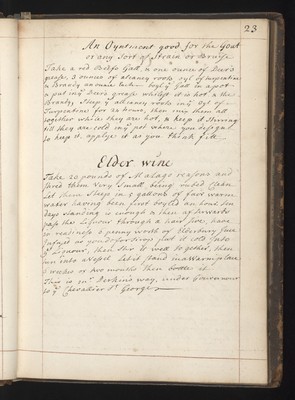 23
An Oyntment good for the Gout
or any sort of Strain or Bruise
Take a red Bulls Gall, an ounce of Deer's
grease, 3 ounces of alcaney roots, oyl of turpentine
& Brandy an ounce boyl yᵉ Gall in a pot
& put in yᵉ Deer's grease whilest it is hot, & the
Brandy, Steep yᵉ alkaney roots in yᵉ oyl of
Turpentine for 24 hours, then mix them all
together while they are hot, & keep it stirring
till they are cold in yᵉ pot where you design
to keep it, applye it as you think fitt
Elder wine
Take 20 pounds of Malaga reasons and
shred them Very Small being rubed Clean
Let them Steep in 5 gallons of fair warm
water having been first boyled an hour ten
days standing is enough & then afterwards
pass the Liquour through a hair sive, have
in readiness 6 penny worth of Elderbury Juce
Infuse as you do for Sirop put it cold into
yᵉ Liquour, then stir it well together, then
tun into a Vessel Let it stand in a warm place
6 weeks or two months then bottle it
This is Mʳ Perkin's way, under Governour
to yᵉ Chevallier Sᵗ George